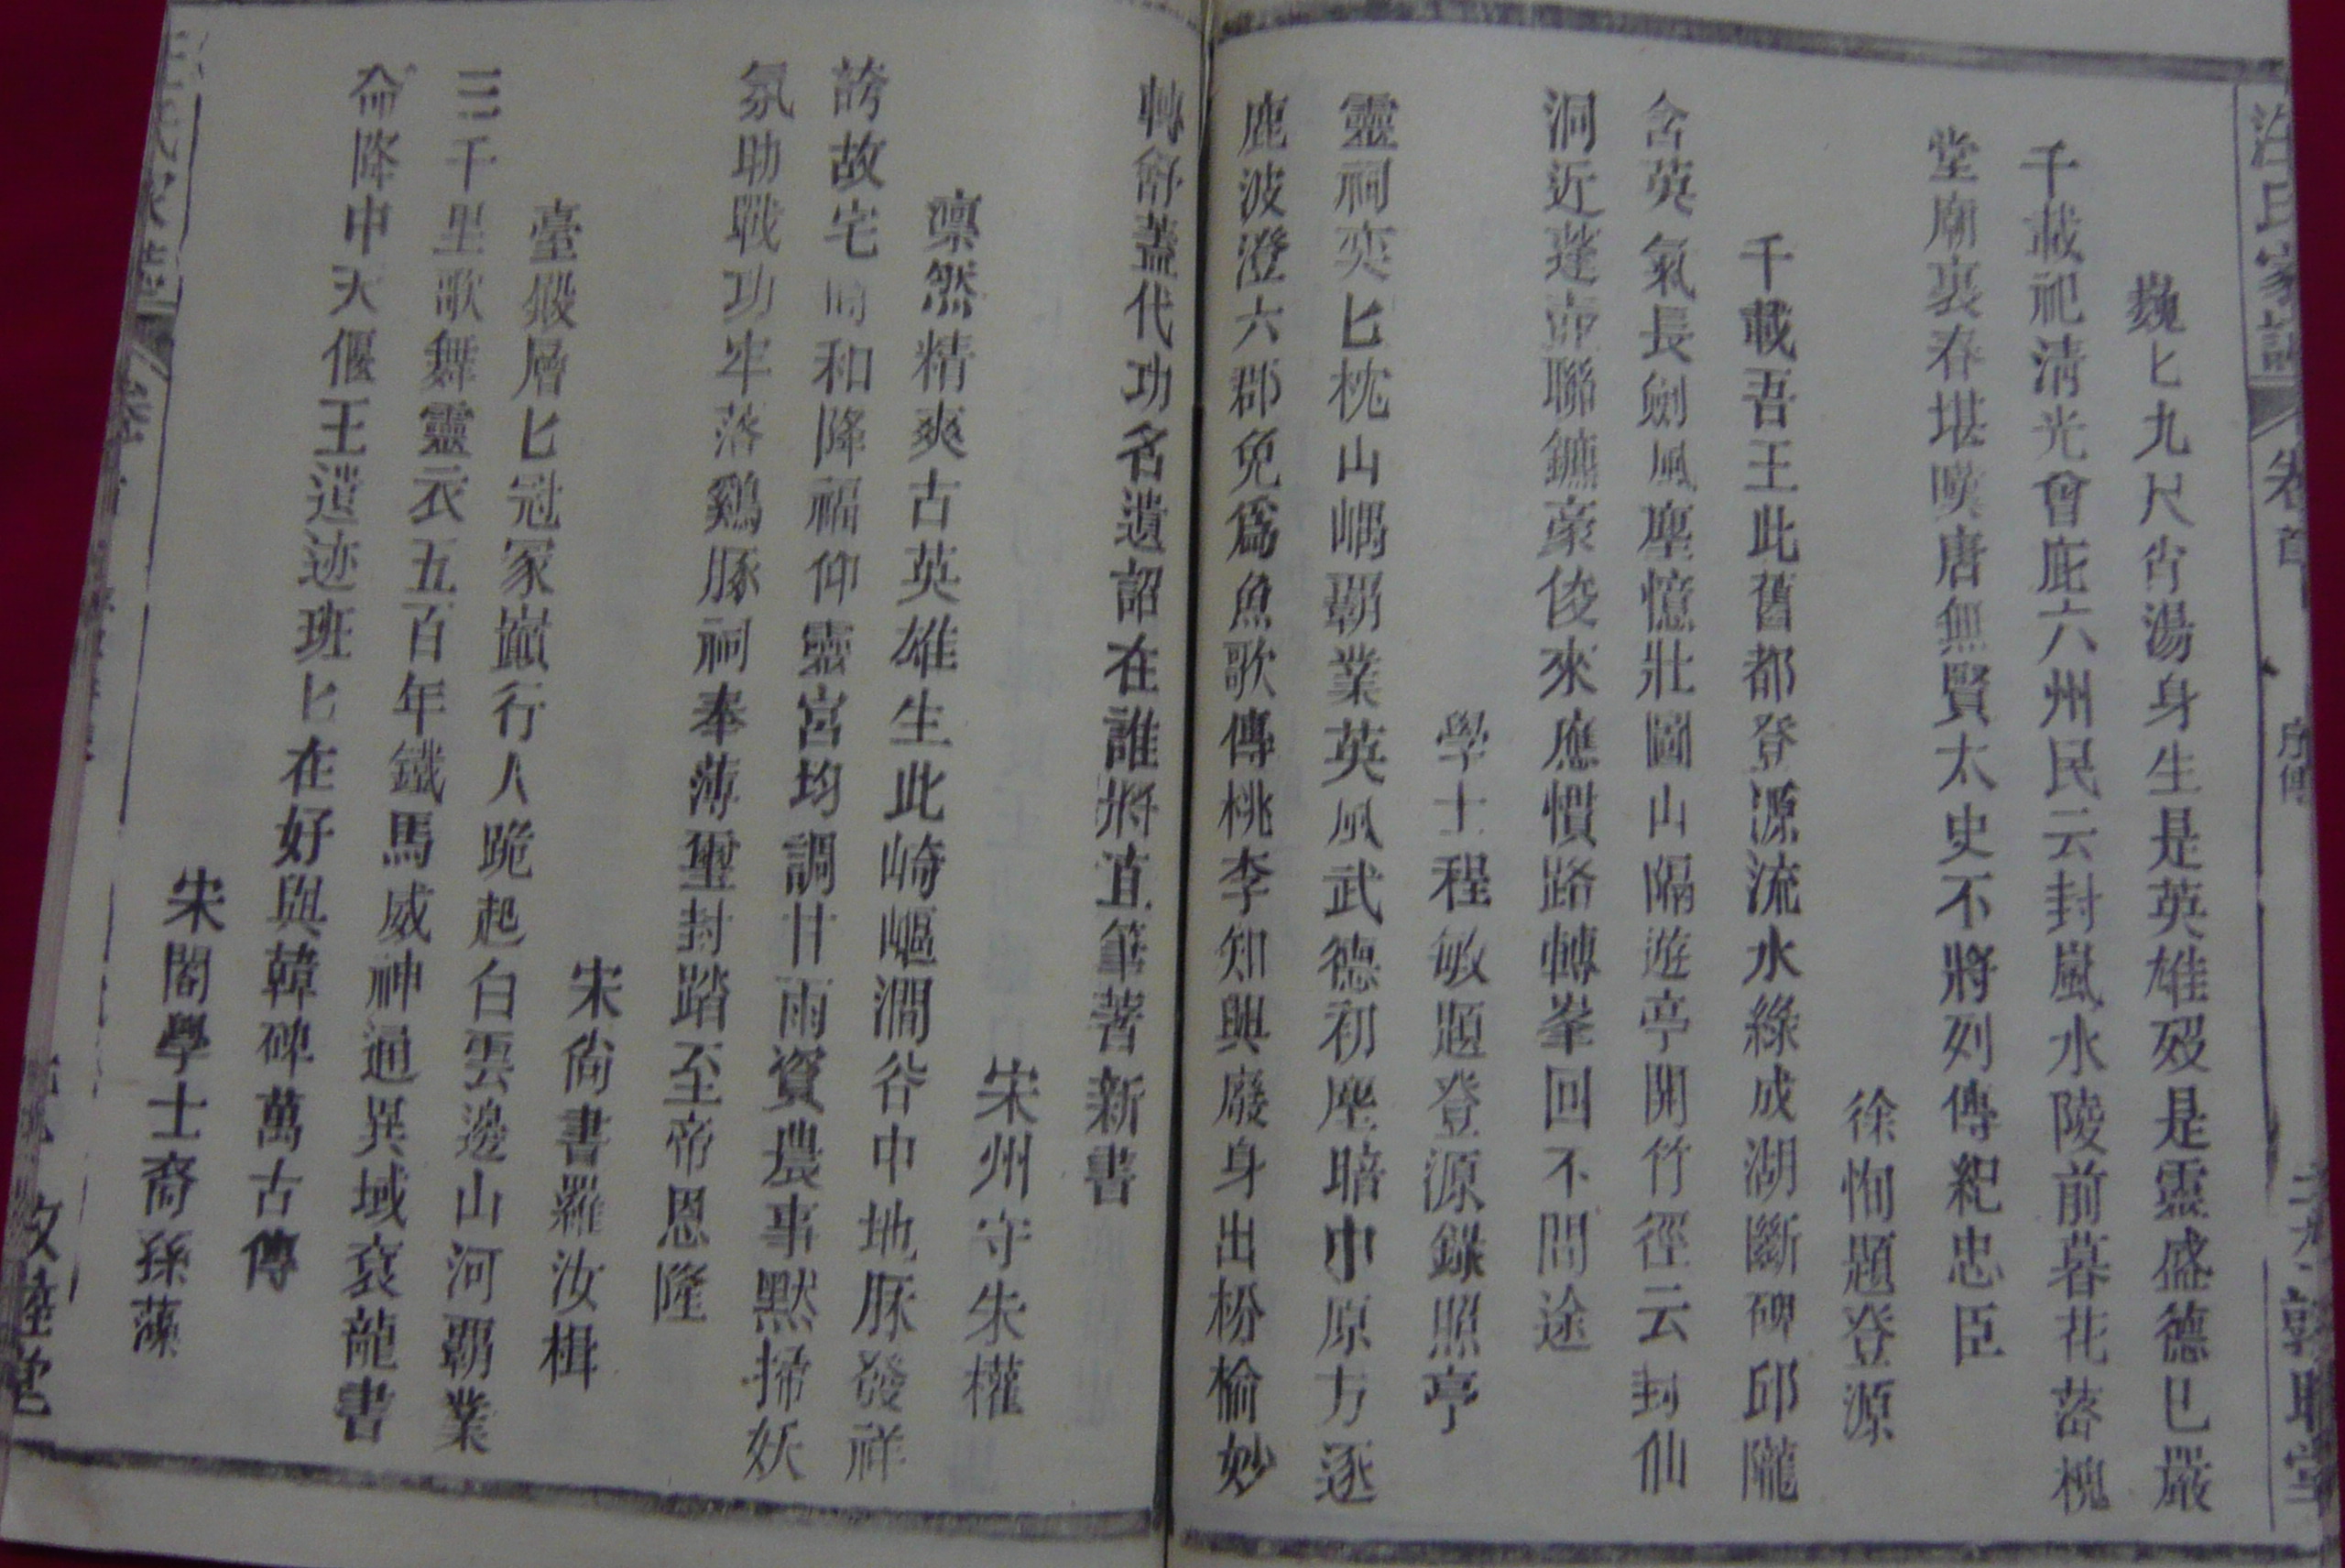 汪氏家譜 卷首 序傳
巍匕九尺肖湯身生是英雄歿是靈盛德巳嚴
千載祀清光曾庇六州民云封嵐水陵前暮花落槐
堂廟裏春堪嘆唐無賢太史不將列傳紀忠臣
徐恂題登源
千載吾王此舊都登源流水綠成湖斷碑邱隴
含英氣長劍風塵憶壯圖山隔遊亭開竹徑云封仙
洞近蓬壺聯鑣豪俊來應慣路轉峯回不問途
學士程敏題登源錄照亭
靈祠奕匕枕山嵎霸業英風武德初塵暗中原方逐
鹿波澄六郡免爲魚歌傳桃李知興廢身出枌榆妙
轉舒蓋代功名遺詔在誰將直筆著新書
宋州守朱權
凛然精爽古英雄生此崎嶇澗谷中地脉發祥
誇故宅時和降福仰靈宮均調甘雨資農事默掃妖
氛助戰功牢落鷄豚祠奉薄璽封踏至帝恩隆
宋尙書羅汝楫
臺殿層匕冠冢巔行人跪起白雲邊山河霸業
三千里歌舞靈衣五百年鐵馬威神通異域袞龍書
命降中天偃王遺迹班匕在好與韓碑萬古傳
宋閣學士裔孫藻